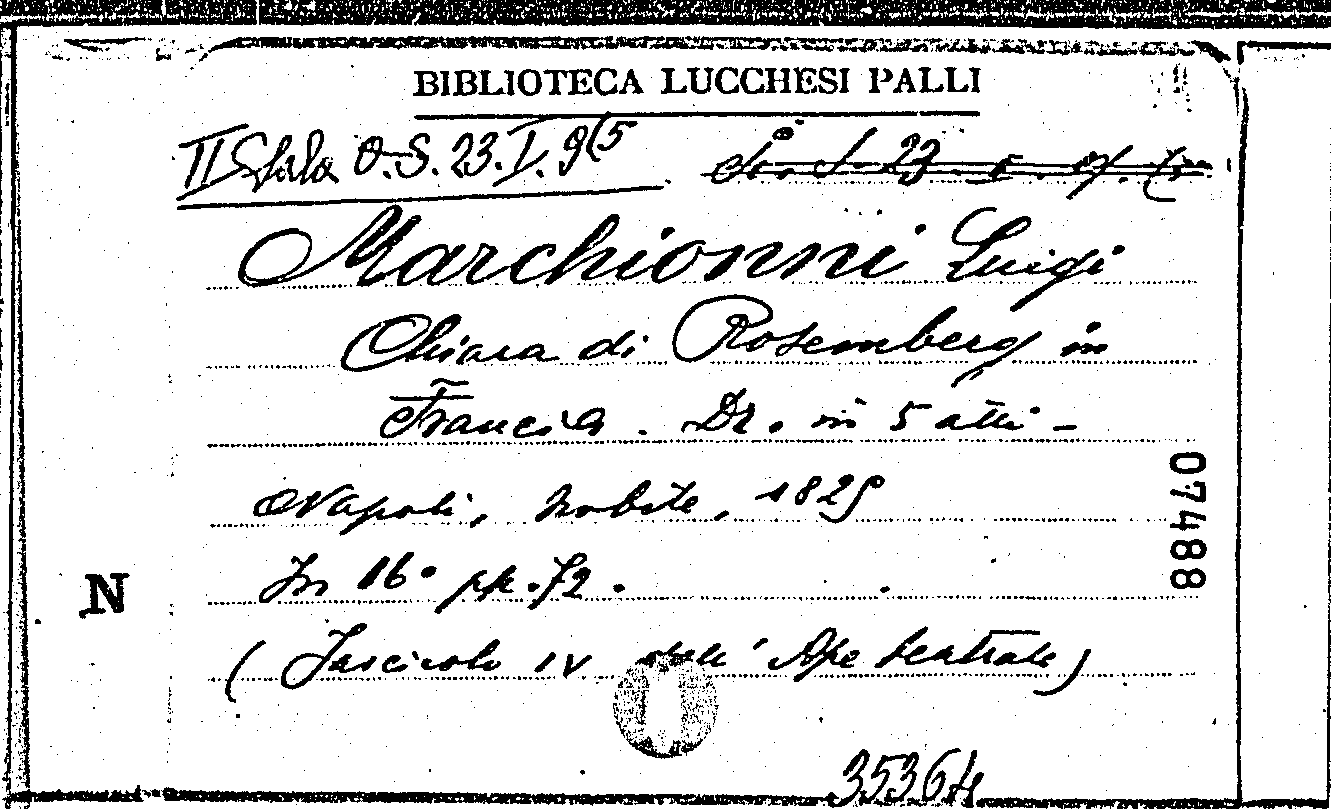 BIBLIOTECA LUCCHESI PALLI
II Sala O.S. 23. I. 9(5
Marchionni Luigi
Chiara di Rosemberg in
Francia. Dr. in 5 atti -
Napoli, Nobile, 1825
In 16° pp. 72.
(Fascicolo IV dell' Ape teatrale)
07488
N
35364